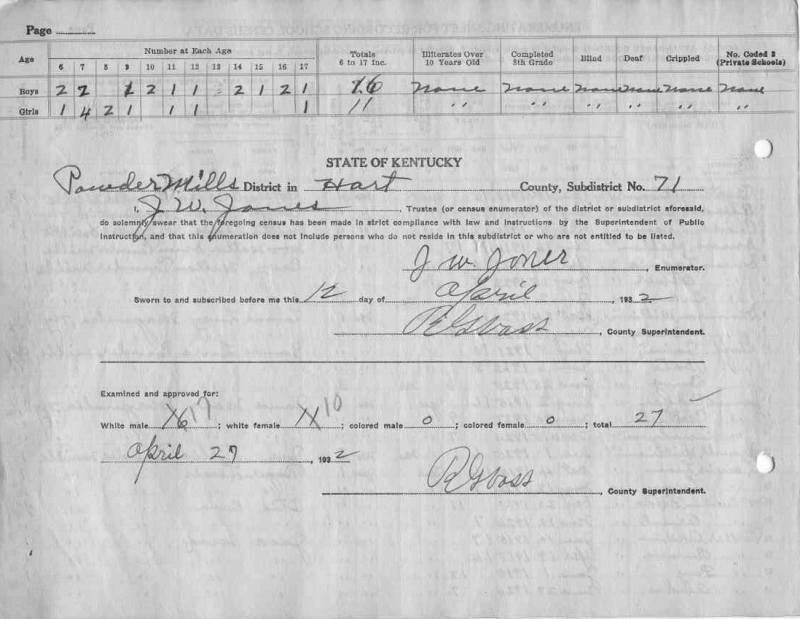 Page
Age Number at Each Age Totals 6 to 17 Inc. Illiterates Over 10 Years Old Completed 8th Grade Blind Deaf Crippled No. Coded 2 (Private Schools)
6 7 8 9 10 11 12 13 14 15 16 17
Boys 2 2 1 2 1 1 2 1 2 1 16 None None None None None None
Girls 1 4 2 1 1 1 1 11 " " " " " "
STATE OF KENTUCKY
Powder Mills District in Hart County, Subdistrict No. 71
I, J. W. Jones, Trustee (or census enumerator) of the district or subdistrict aforesaid,
do solemnly swear that the foregoing census has been made in strict compliance with law and instructions by the Superintendent of Public
Instruction, and that this enumeration does not include persons who do not reside in this subdistrict or who are not entitled to be listed.
J. W. Jones, Enumerator.
Sworn to and subscribed before me this 12 day of April, 1932
County Superintendent.
Examined and approved for:
White male 16 17; white female 11 10; colored male 0; colored female 0; total 27
April 27, 1932
County Superintendent.